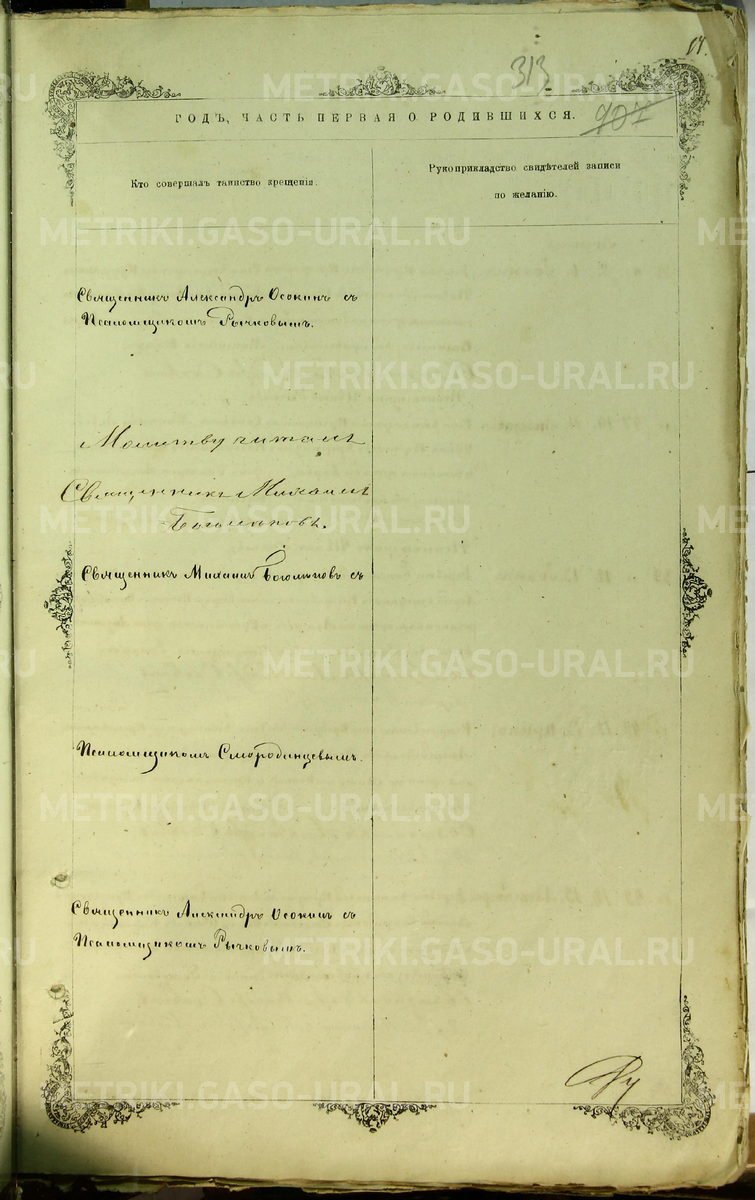 313
64.
907
ГОДЪ, ЧАСТЬ ПЕРВАЯ О РОДИВШИХСЯ.
Кто совершалъ таинство крещенія.
Рукоприкладство свидѣтелей записи
по желанію.
Священникъ Александръ Осокинъ съ
Псаломщикомъ Рычковымъ.
Молитву читалъ
Священникъ Михаилъ
Боголѣповъ.
Священникъ Михаилъ Боголѣповъ съ
Псаломщикомъ Смородинцевымъ.
Священникъ Александръ Осокинъ съ
Псаломщикомъ Рычковымъ.
METRIKI.GASO-URAL.RU